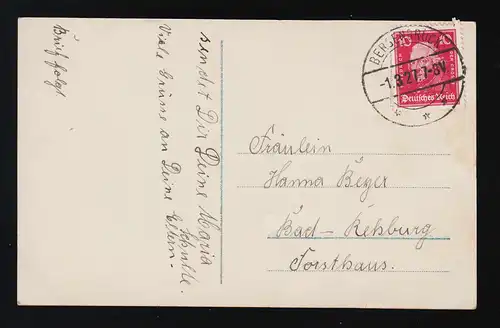 sendet Dir Deine Maria
Schulte.
Viele Grüsse an Deine Eltern.
Brief folgt
10 10
Deutsches Reich
-1.3.27.7-8V
Fräulein
Hanna Beyer
Bad-Rehburg
Forsthaus.